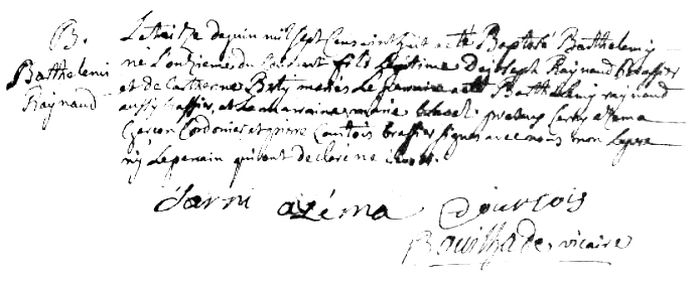 B.
Barthelemi
Raynaud
Le treize de juin mil sept cens soixante huit a été Baptisé Barthelemy
né l'onzieme du Courant fils Legitime de joseph Raynaud Brassier
et de Catherine Bety mariés Le parrain a été Barthelemy raynaud
aussy brassier, et La marraine marie presens Azema
Garcon Cordonier et pierre Courtois brassier signés avec nous non Le pere
ny Le parrain qui ont declaré ne
Jarni azéma Courtois
Bouilhade, vicaire